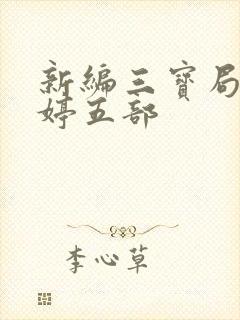 新编三宝局
婷五部
李心草